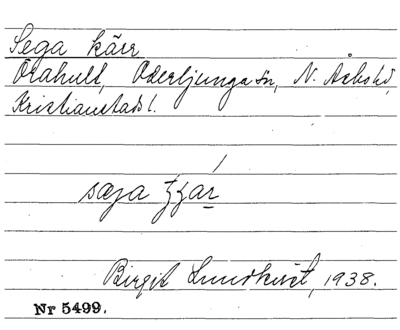 Sega kärr
Örahult, Oderljunga sn, N. Åsbo hd,
Kristianstads l.
saga
Birgit Lundkvist, 1938.
Nr 5499.